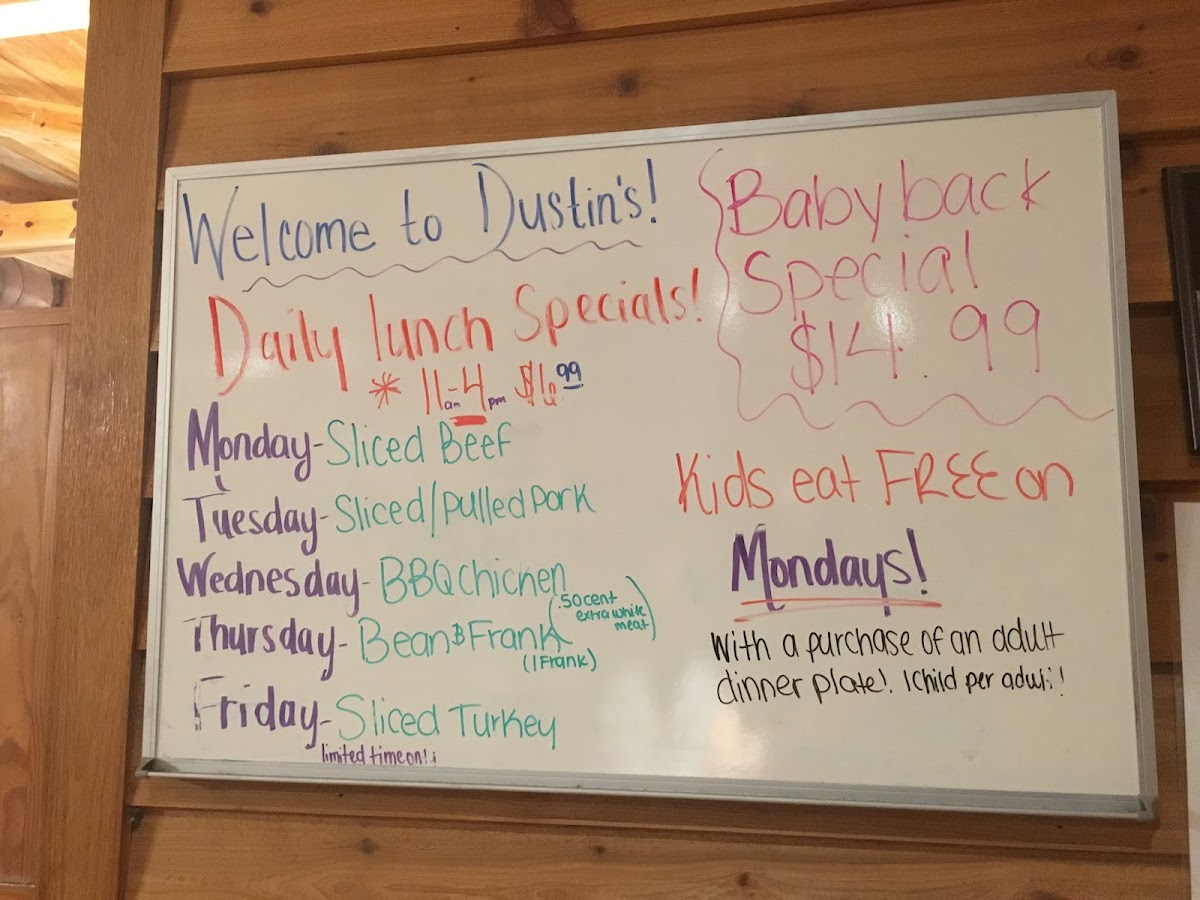 Welcome to Dustin's!
Daily lunch Specials!
* 11am-4pm $6.99
Monday-Sliced Beef
Tuesday-Sliced/pulled pork
Wednesday-BBQ Chicken
(.50cent
extra white
meat)
Thursday-Bean & Frank
(1 Frank)
Friday-Sliced Turkey
limited time only
Baby back
Special
$14.99
Kids eat FREE on
Mondays!
With a purchase of an adult
dinner plate!. 1 Child per adult!